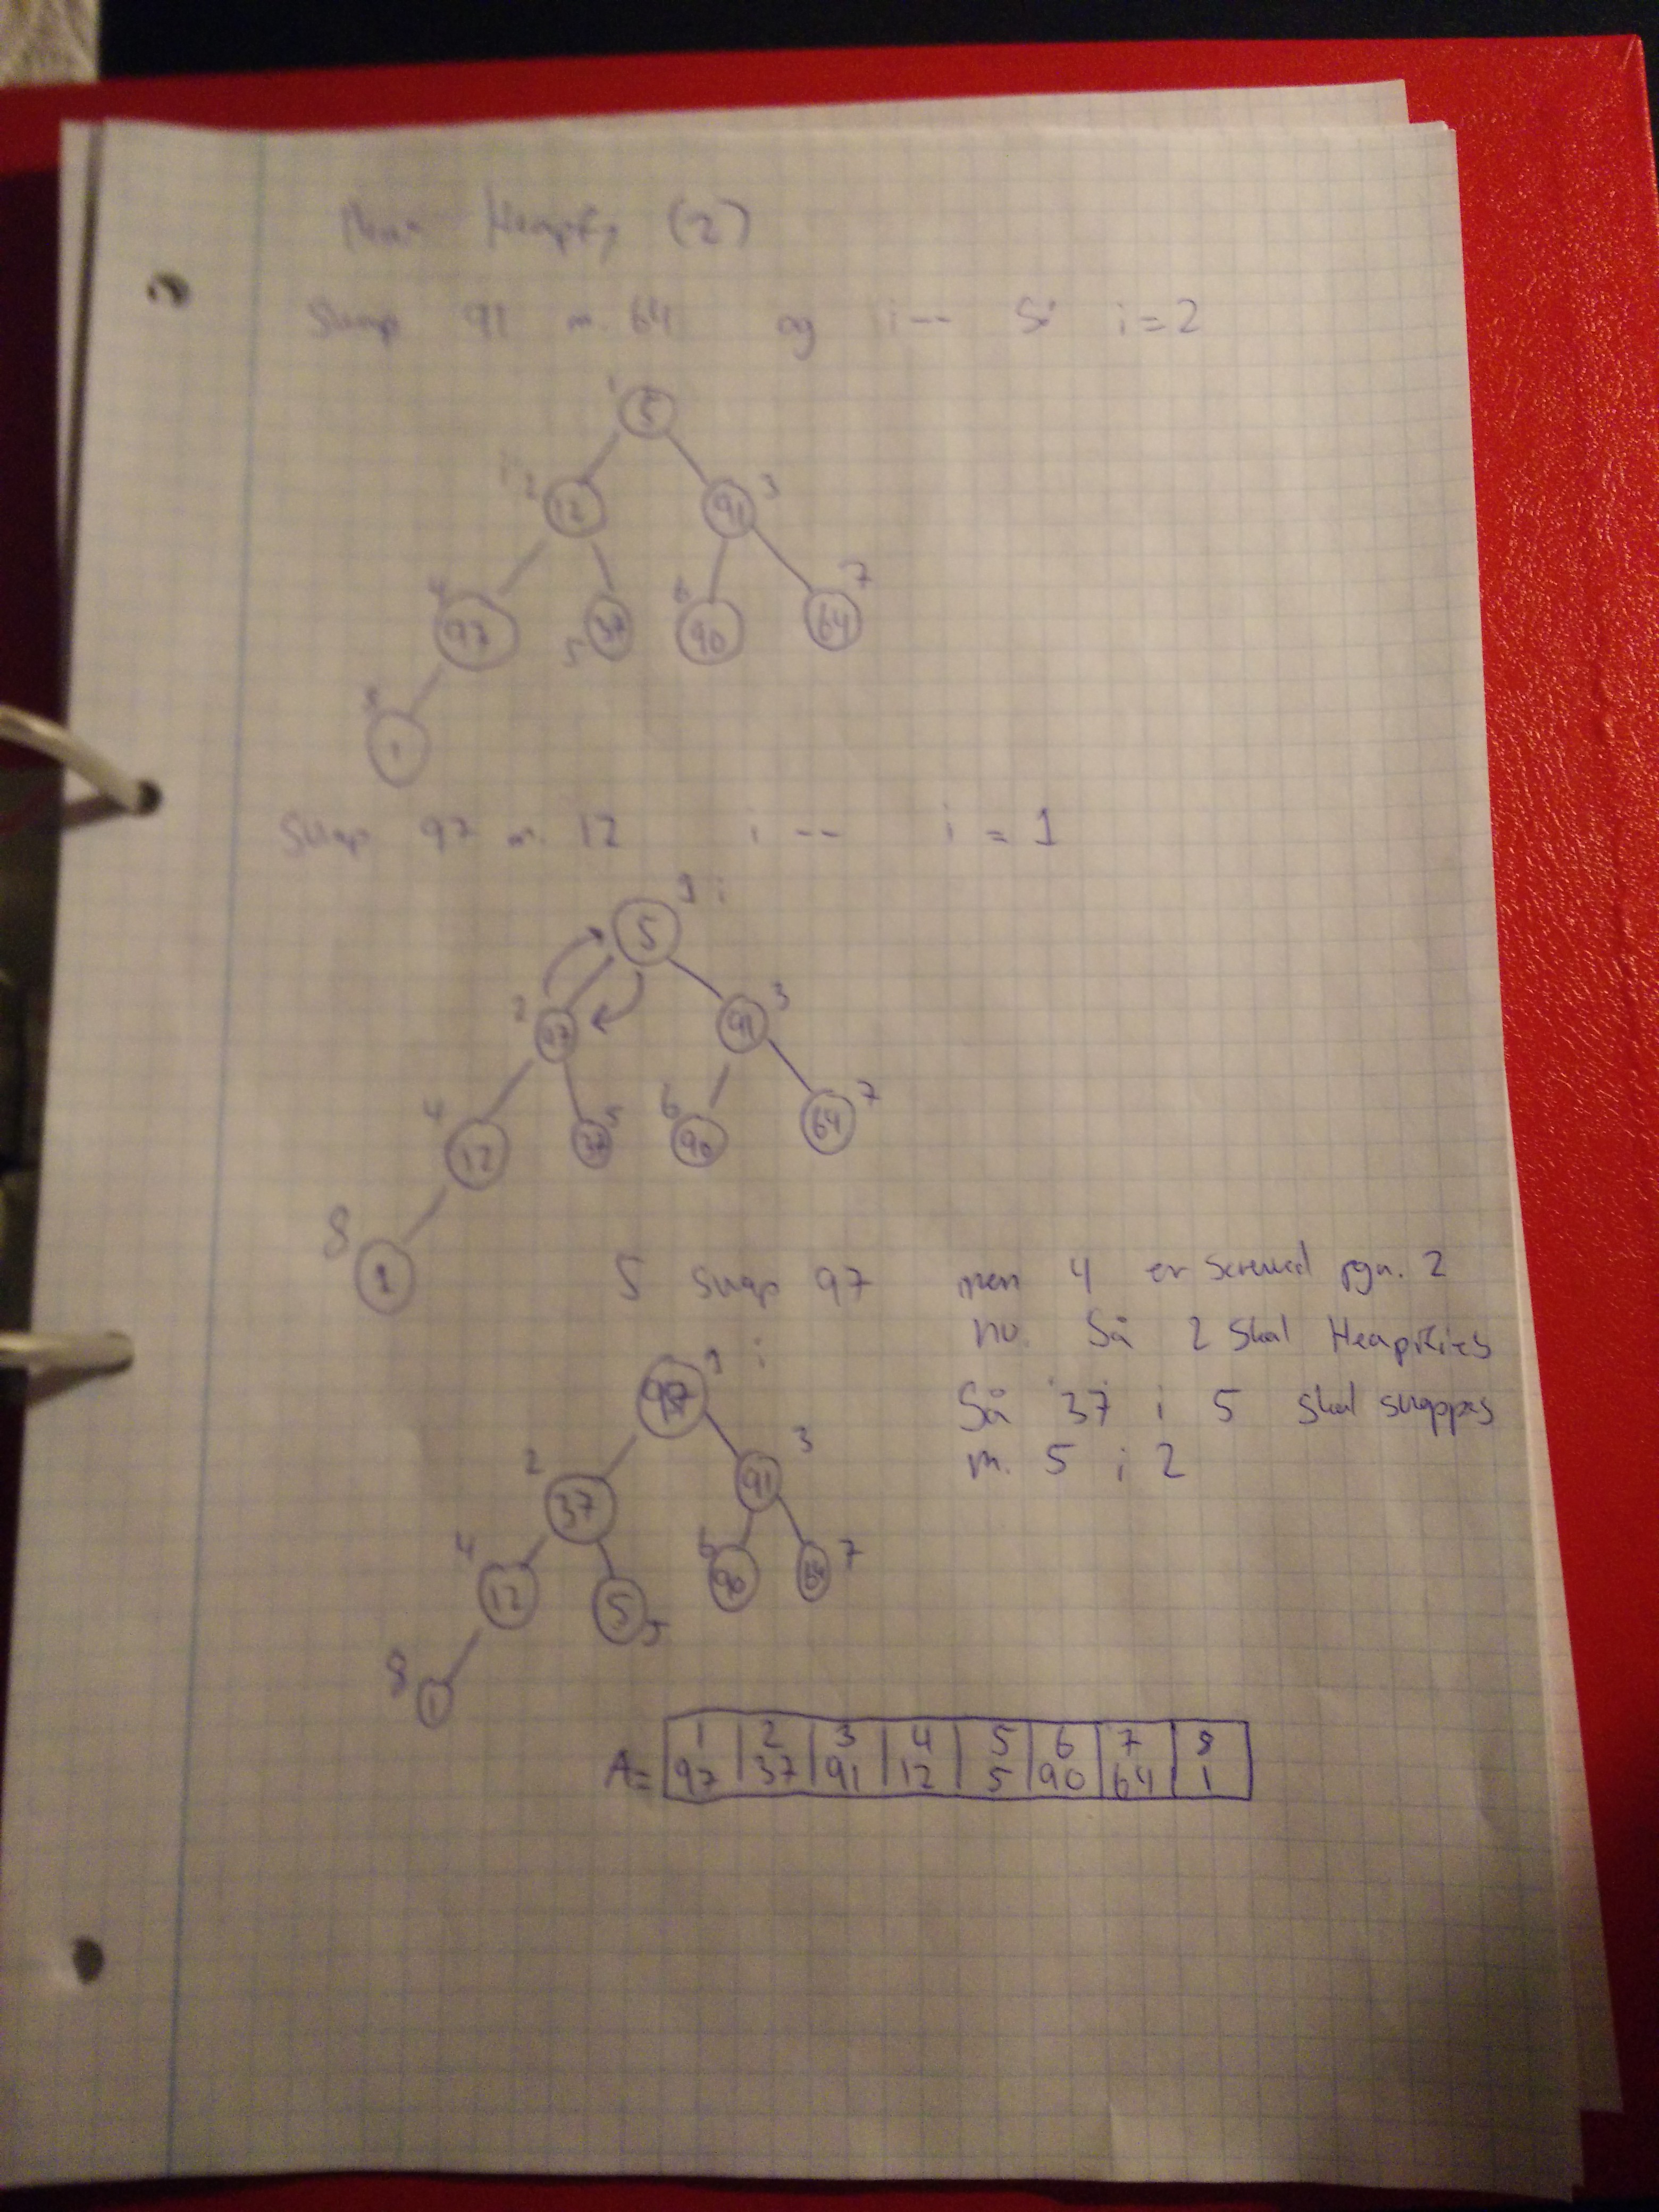 Max Heapify (2)
Swap 91 m. 64 og i-- Så i=2
1
5
i 2 3
12 91
4 5 6 7
97 37 90 64
8
1
Swap 97 m. 12 i-- i = 1
1 i
5
2 3
97 91
4 5 6 7
12 37 90 64
8
1
5 swap 97 men 4 er screwed pga. 2
nu. Så 2 skal Heapifies
Så 37 i 5 skal swappes
m. 5 i 2
1 i
97
2 3
37 91
4 5 6 7
12 5 90 64
8
1
1 2 3 4 5 6 7 8
A= 97 37 91 12 5 90 64 1